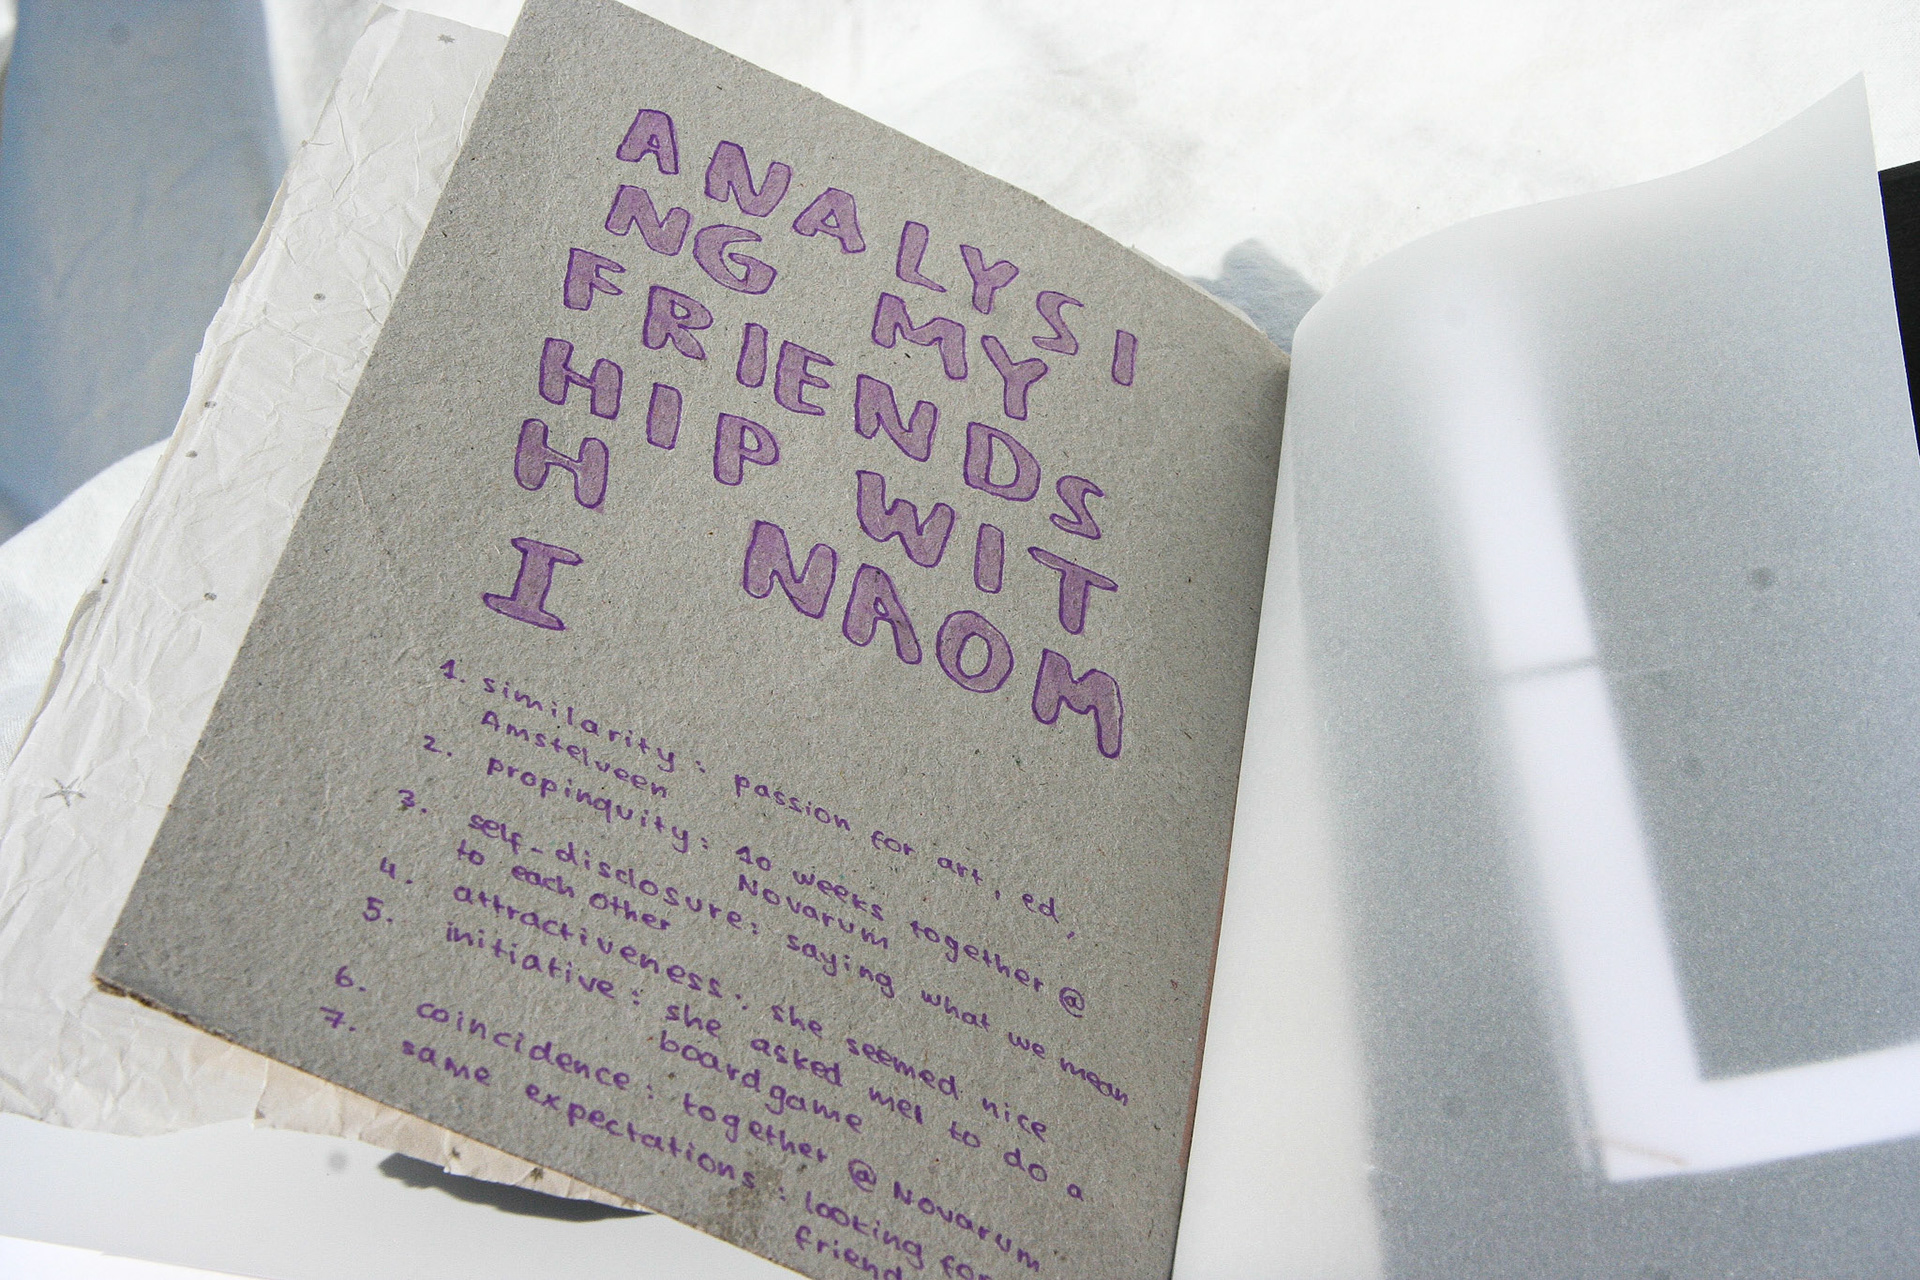 ANALYSI
NG MY
FRIENDS
HIP WIT
H NAOM
I
1. similarity: passion for art, ed,
Amstelveen
2. propinquity: 10 weeks together @
Novarum
3. self-disclosure: saying what we mean
to each other
4. attractiveness: she seemed nice
5. initiative: she asked me to do a
boardgame
6. coincidence: together @ Novarum
7. same expectations: looking for
friend